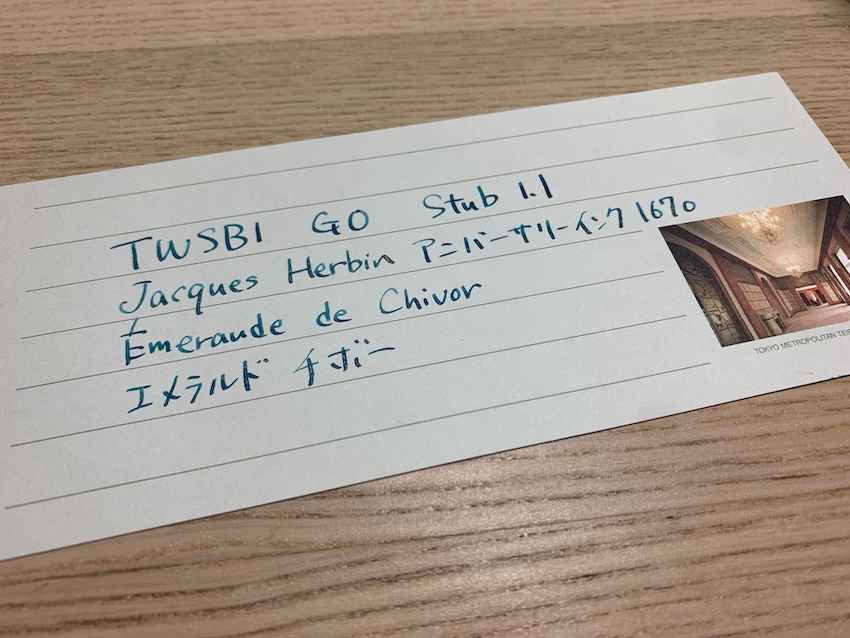 TWSBI GO Stub 1.1
Jacques Herbin アニバーサリーインク 1670
Émeraude de Chivor
エメラルド チボー
TOKYO METROPOLITAN